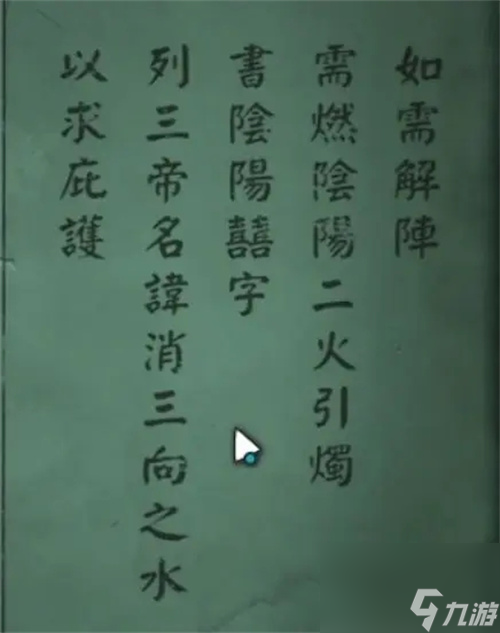 如需解陣
需燃陰陽二火引燭
書陰陽囍字
列三帝名諱消三向之水
以求庇護
九游